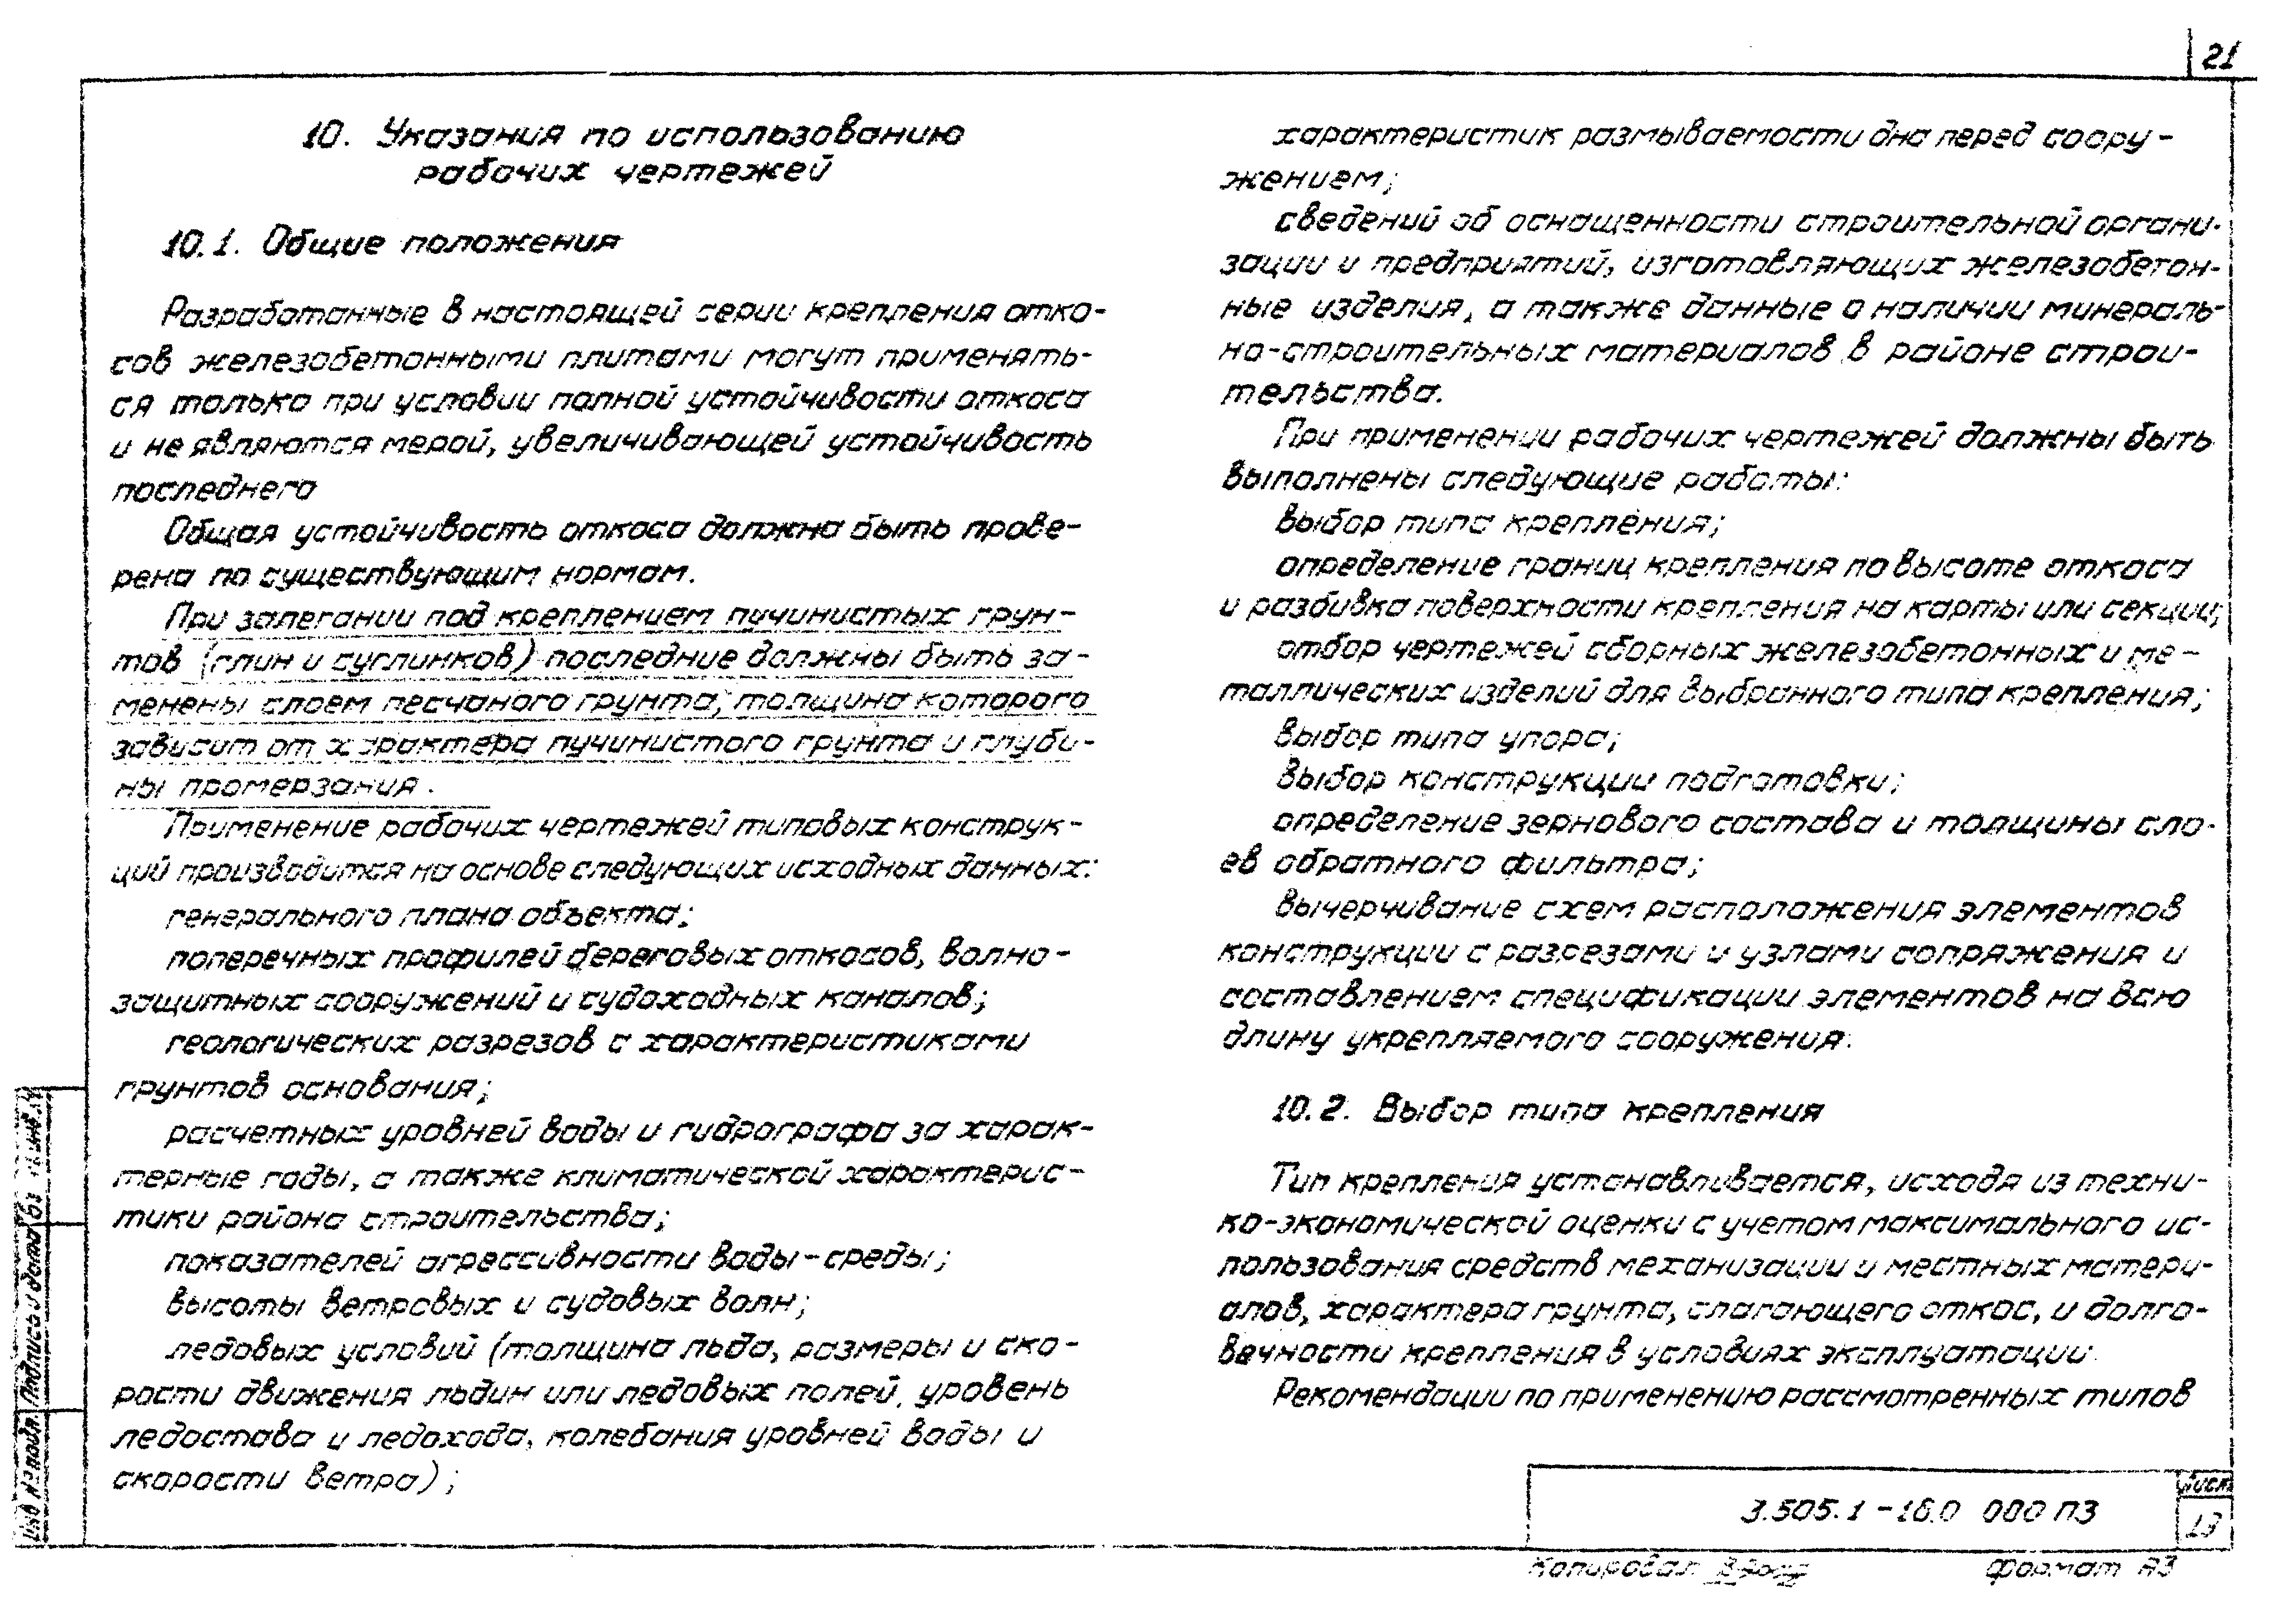 21
10. Указания по использованию
рабочих чертежей
10.1. Общие положения
Разработанные в настоящей серии крепления отко-
сов железобетонными плитами могут применять-
ся только при условии полной устойчивости откоса
и не являются мерой, увеличивающей устойчивость
последнего
Общая устойчивость откоса должна быть прове-
рена по существующим нормам.
При залегании под креплением пучинистых грун-
тов (глин и суглинков) последние должны быть за-
менены слоем песчаного грунта, толщина которого
зависит от характера пучинистого грунта и глуби-
ны промерзания.
Применение рабочих чертежей типовых конструк-
ций производится на основе следующих исходных данных:
генерального плана объекта;
поперечных профилей береговых откосов, волно-
защитных сооружений и судоходных каналов;
геологических разрезов с характеристиками
грунтов основания;
расчетных уровней воды и гидрографа за харак-
терные годы, а также климатической характерис-
тики района строительства;
показателей агрессивности воды-среды;
высоты ветровых и судовых волн;
ледовых условий (толщина льда, размеры и ско-
рости движения льдин или ледовых полей, уровень
ледостава и ледохода, колебания уровней воды и
скорости ветра);
характеристик размываемости дна перед соору-
жением;
сведений об оснащенности строительной органи-
зации и предприятий, изготовляющих железобетон-
ные изделия, а также данные о наличии минераль-
но-строительных материалов в районе строи-
тельства.
При применении рабочих чертежей должны быть
выполнены следующие работы:
выбор типа крепления;
определение границ крепления по высоте откоса
и разбивка поверхности крепления на карты или секции;
отбор чертежей сборных железобетонных и ме-
таллических изделий для выбранного типа крепления;
выбор типа упора;
выбор конструкции подготовки;
определение зернового состава и толщины сло-
ев обратного фильтра;
вычерчивание схем расположения элементов
конструкции с разрезами и узлами сопряжения и
составлением спецификации элементов на всю
длину укрепляемого сооружения.
10.2. Выбор типа крепления
Тип крепления устанавливается, исходя из техни-
ко-экономической оценки с учетом максимального ис-
пользования средств механизации и местных матери-
алов, характера грунта, слагающего откос, и долго-
вечности крепления в условиях эксплуатации.
Рекомендации по применению рассмотренных типов
3.505.1-16.0 000 ПЗ
Лист
19
Копировал
Формат А3
Инв № подл. Подпись и дата Вз инв. №